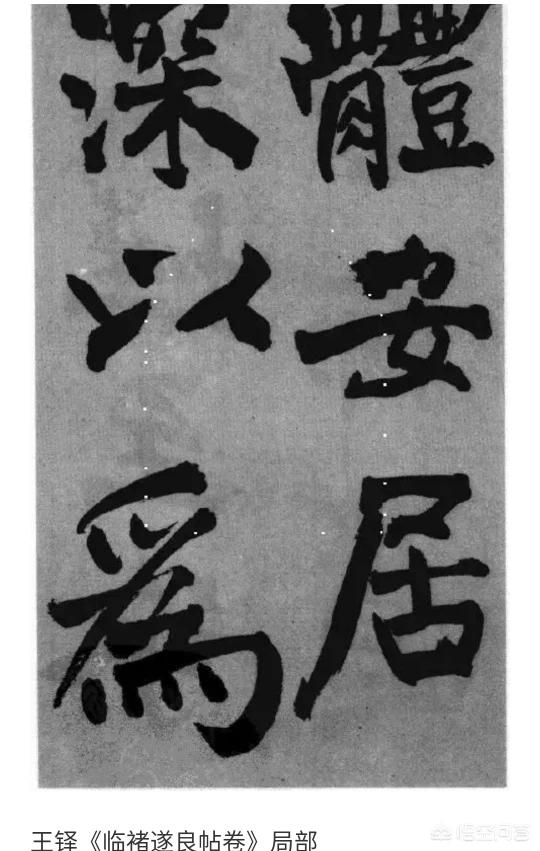 體安居
深以爲
王铎《临褚遂良帖卷》局部
悟空问答